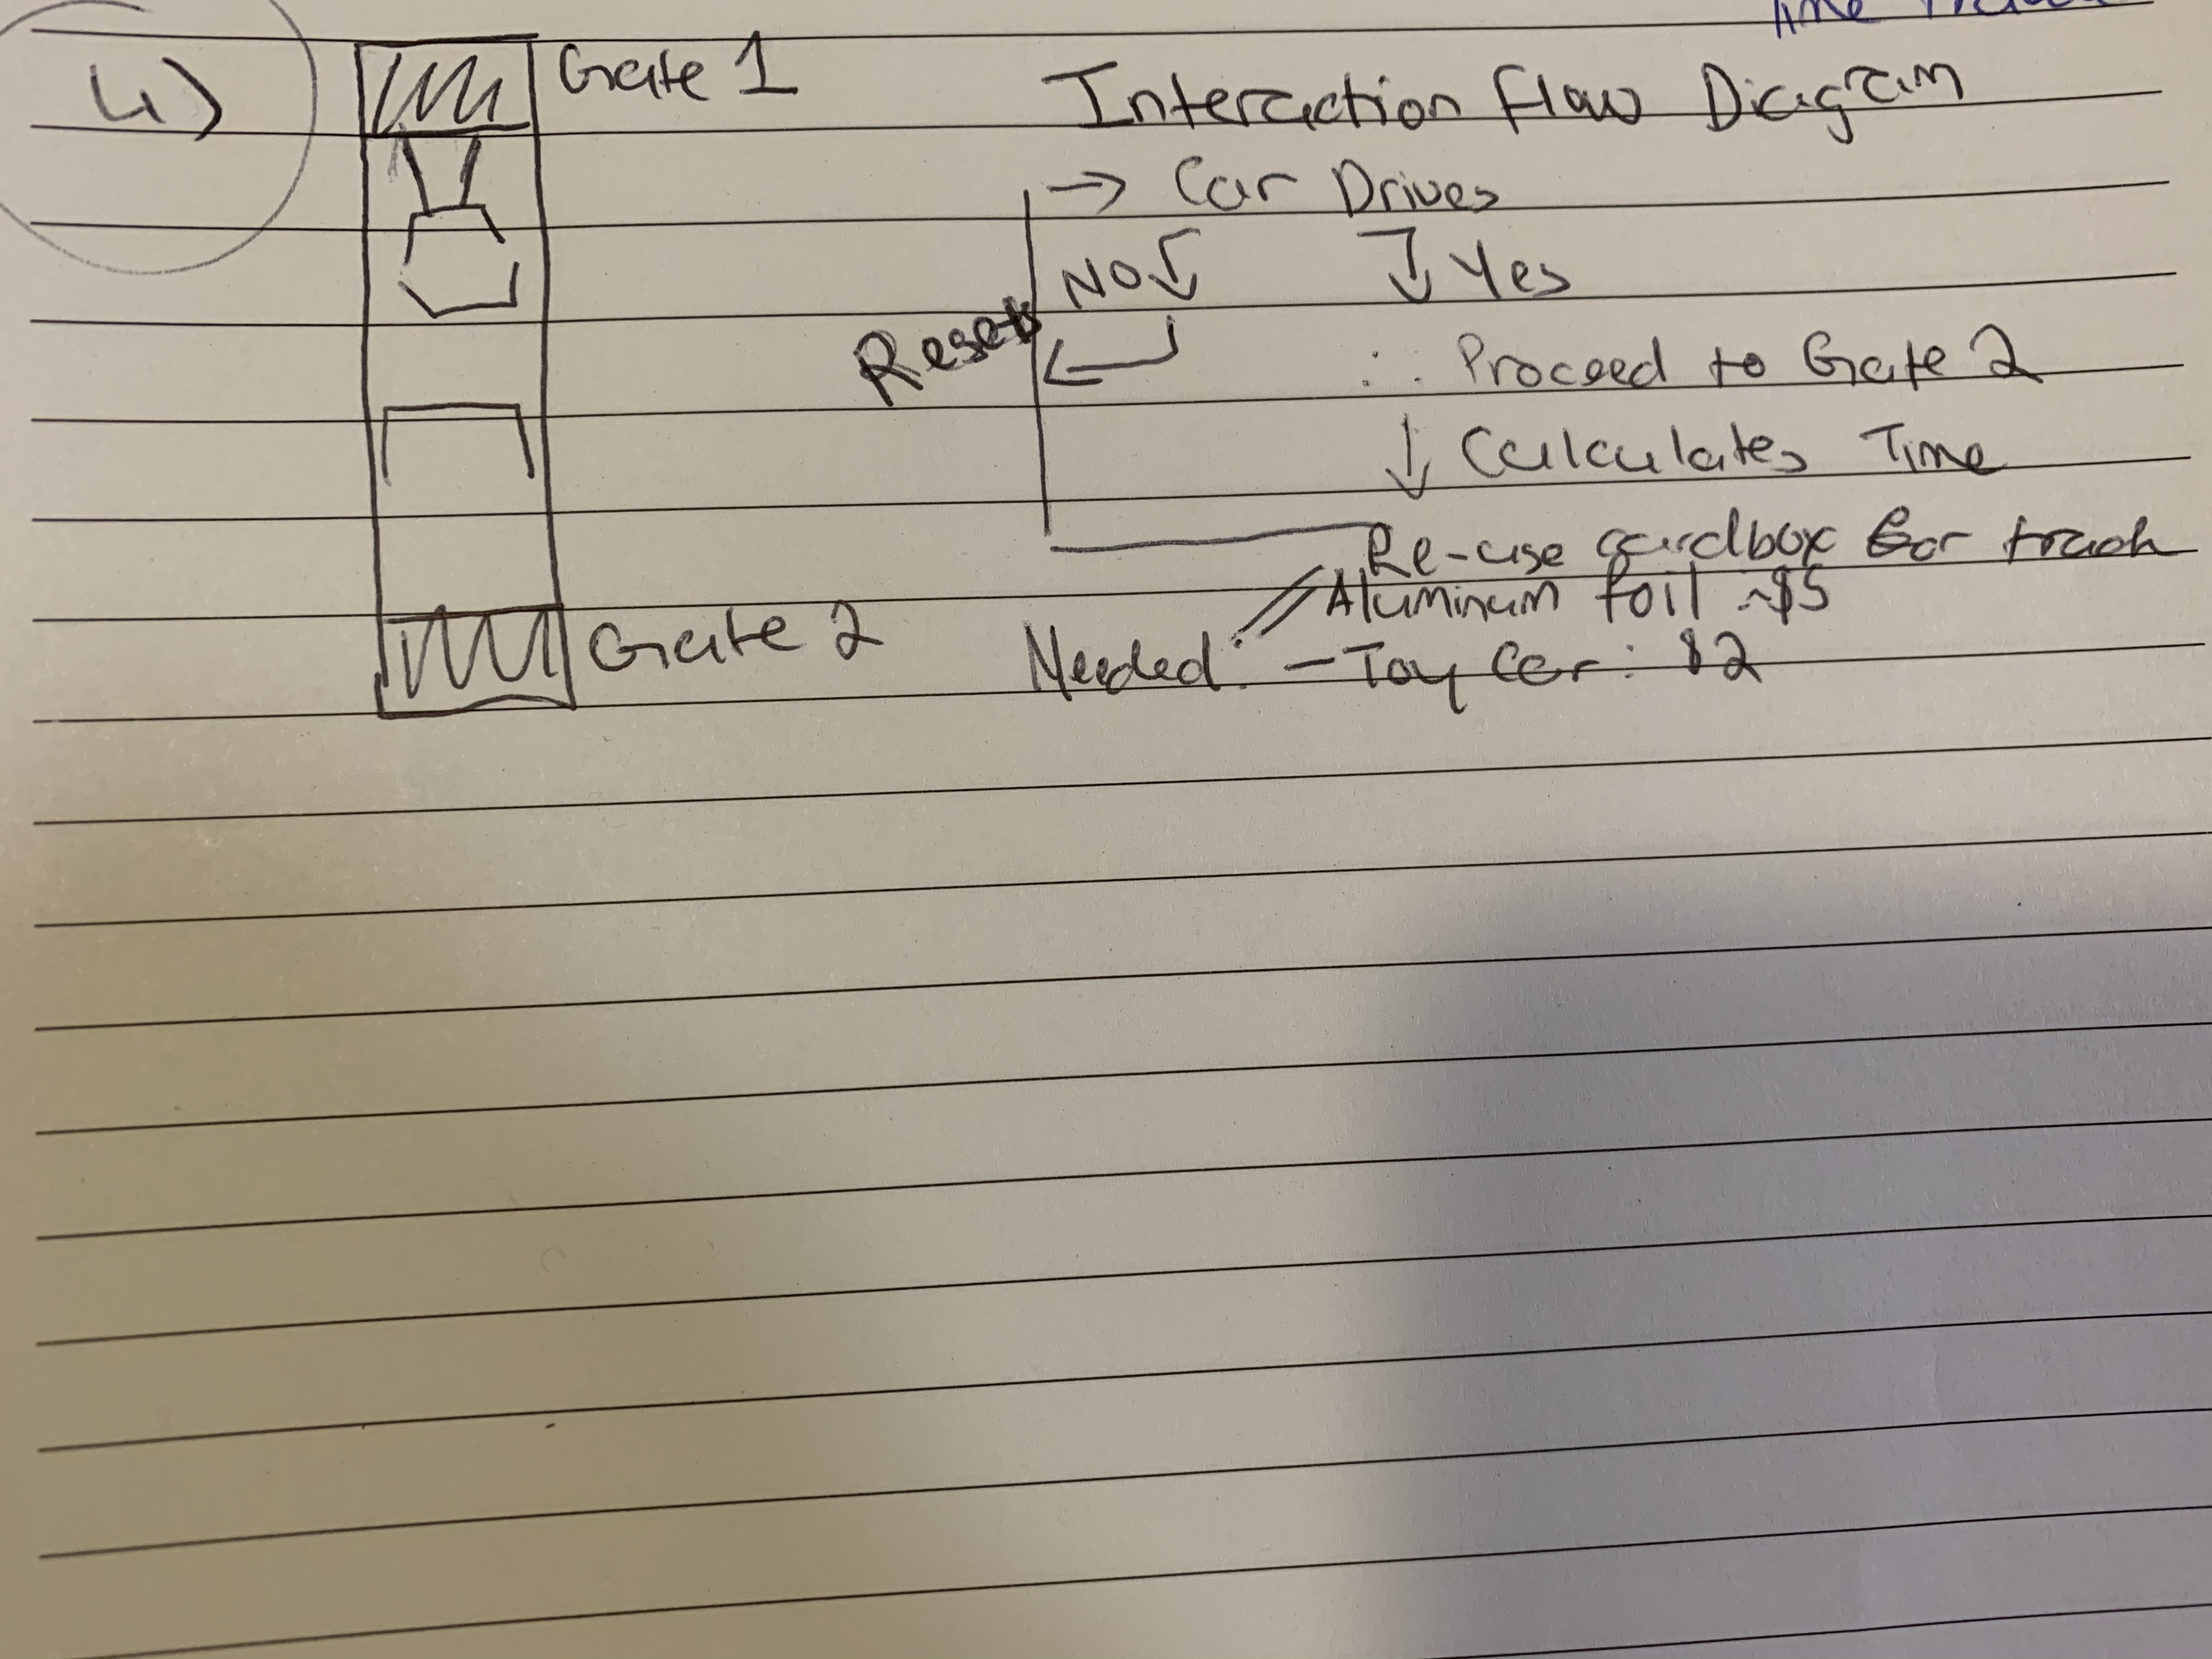 4)
Gate 1
Interaction Flow Diagram
→ Car Drives
NO ↓ ↓ Yes
Reset
∴ Proceed to Gate 2
↓ Calculates Time
Re-use cardbox for track
Aluminum foil ~$5
Gate 2
Needed: - Toy Car: $2